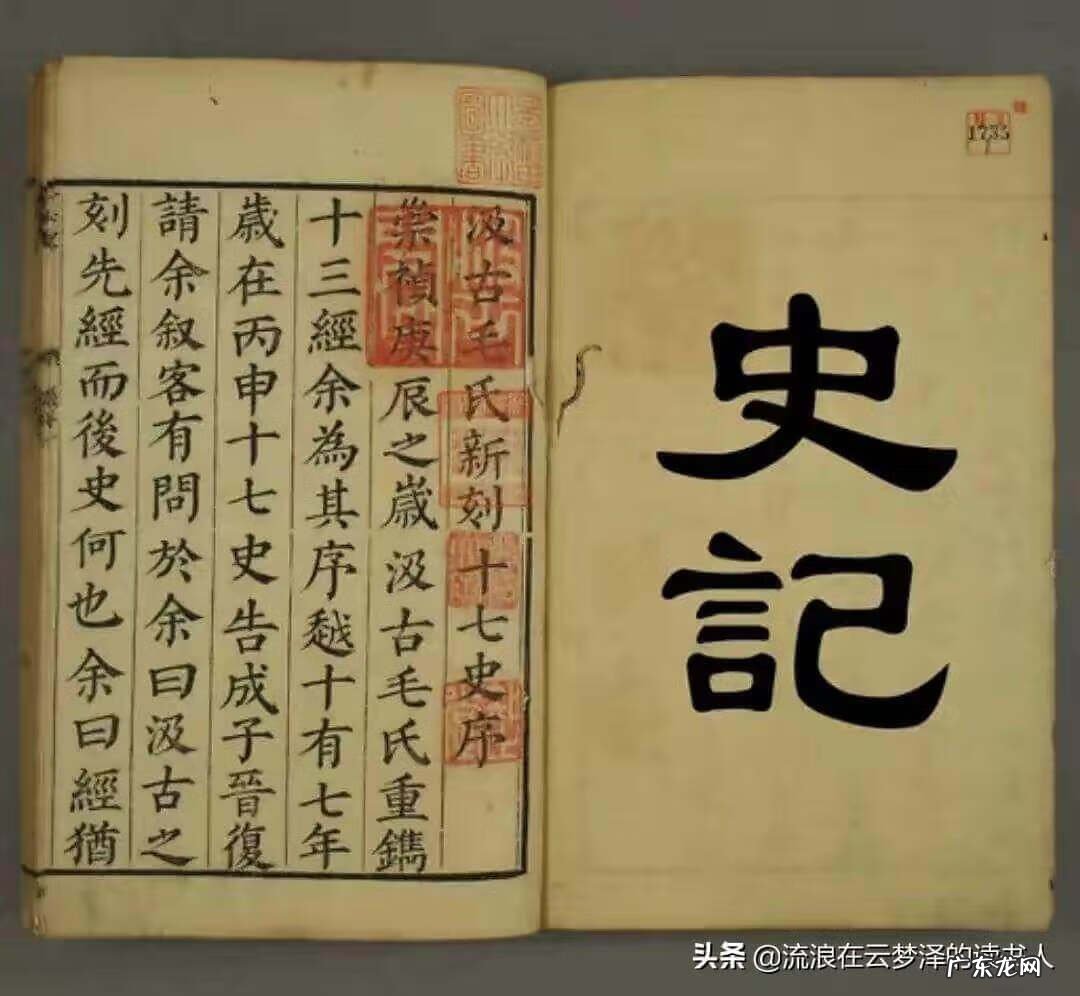 史記
1735
汲古毛氏新刻十七史序
崇禎庚辰之歲汲古毛氏重鐫
十三經余為其序越十有七年
歲在丙申十七史告成子晉復
請余叙客有問於余曰汲古之
刻先經而後史何也余曰經猶
头条 @流浪在云梦泽的读书人
广东龙网